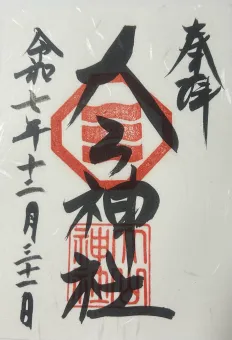 奉拝
神社
令和七年十二月三十一日